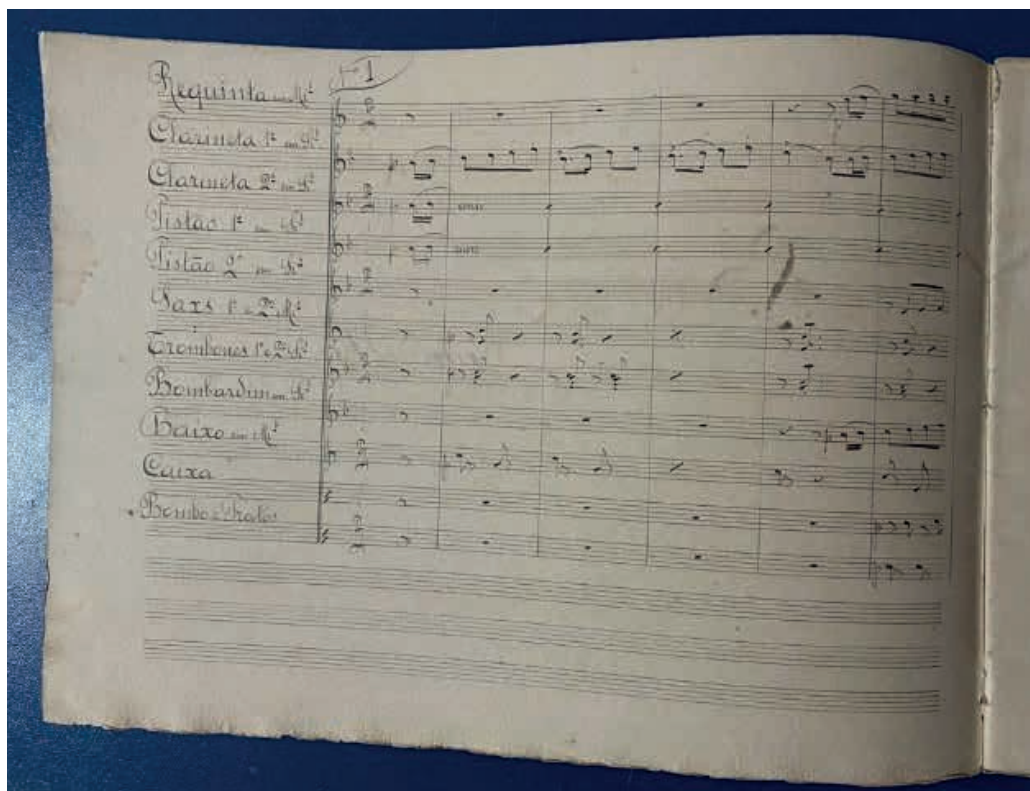 Nº 1
Requinta em Mi♭
Clarineta 1ª em Si♭
Clarineta 2ª em Si♭
Pistão 1º em Si♭
Pistão 2º em Si♭
Saxs 1º e 2º Mi♭
Trombones 1º e 2º Si♭
Bombardino em Si♭
Baixo em Mi♭
Caixa
Bombo e Pratos